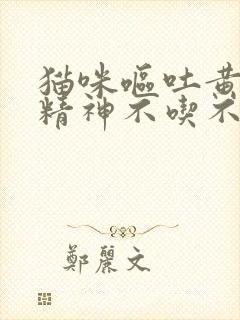 猫咪呕吐黄
精神不喫不
鄭麗文